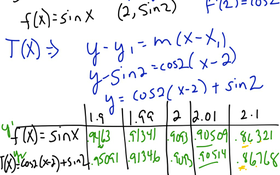 f(x)=sinx (2, sin2) f'(2)=cos2
T(x) ⇒ y-y₁ = m(x-x₁)
y-sin2 = cos2(x-2)
y = cos2(x-2) + sin2
1.9 1.99 2 2.01 2.1
f(x)=sinx .9463 .91341 .9093 .90509 .86321
T(x)=cos2(x-2)+sin2 .95091 .91346 .9093 .90514 .86768